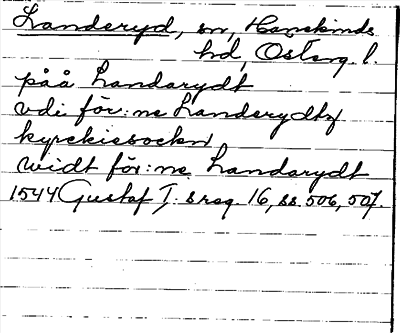 Landeryd, sn, Hanekinds
hd, Österg. l.
påå Landarydt
vdi för:ne Landerydtz
kyrckiesockn
widt för:ne Landarydt
1544 Gustaf I: s reg. 16, ss. 506, 507.